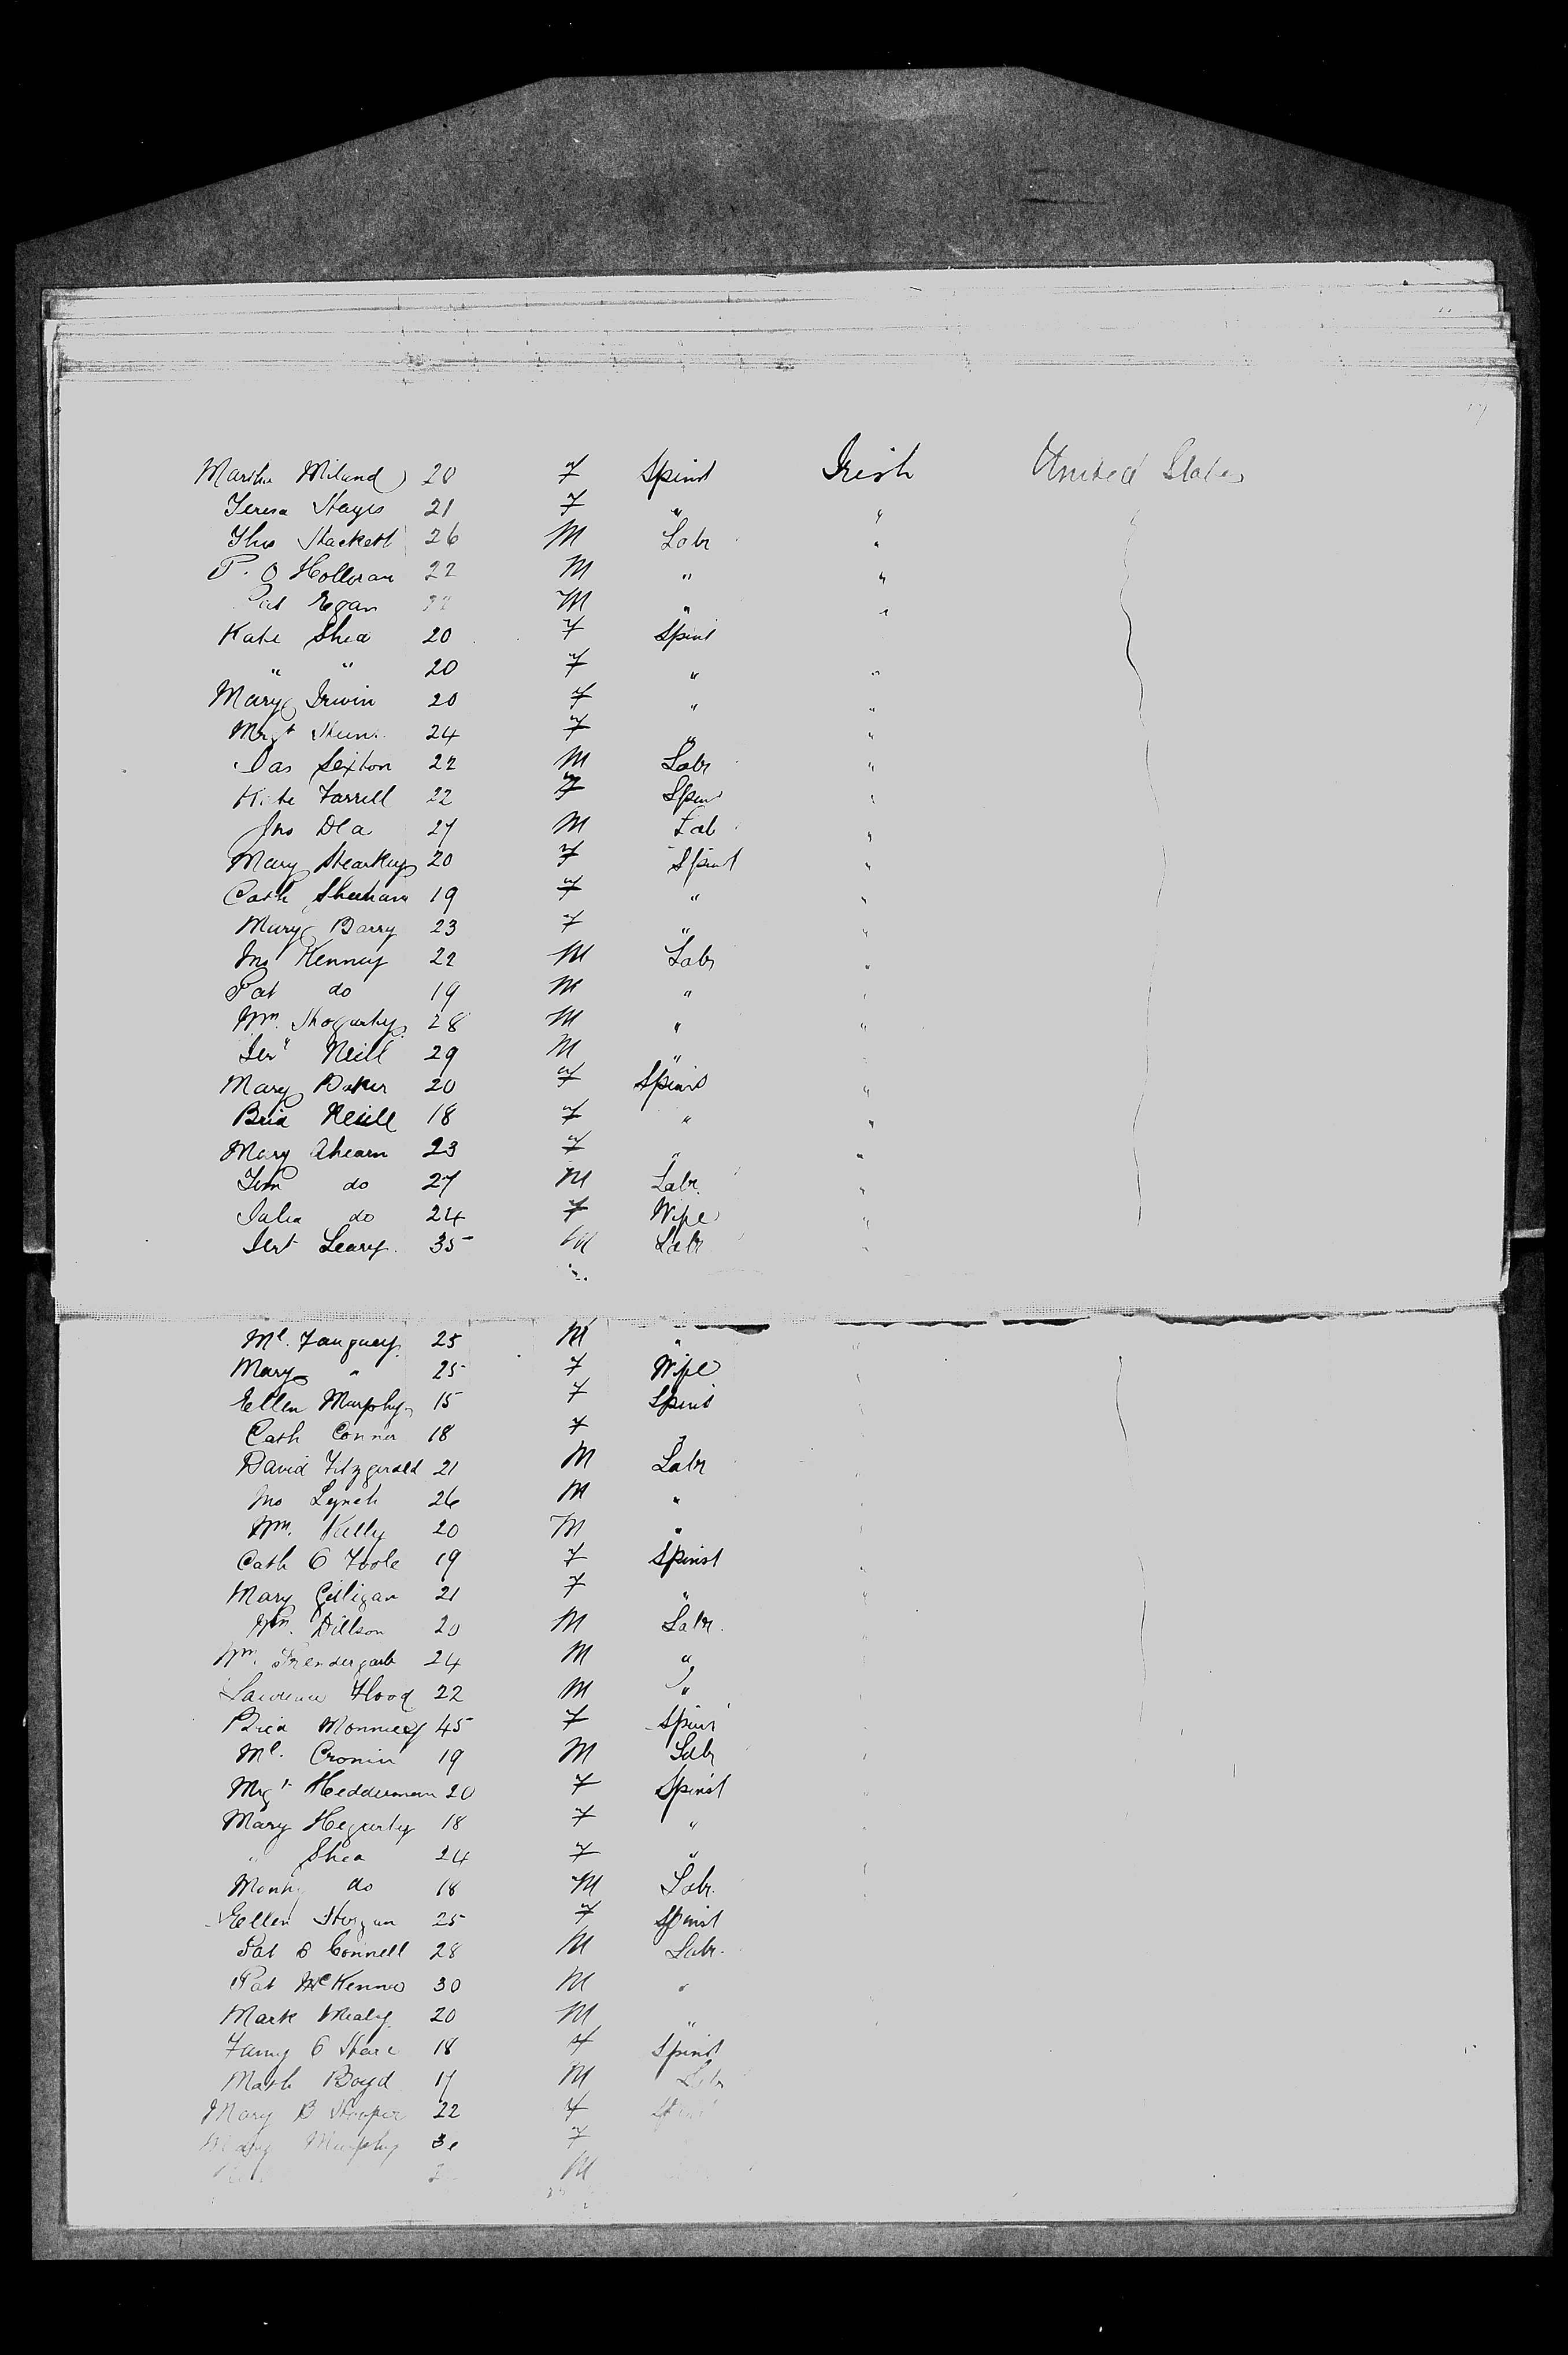 Martha Miland 20 F Spinst Irish United States
Teresa Hayes 21 F " "
Thos Hackett 26 M Labr "
P. O Holloran 22 M " "
Pat Egan M " "
Kate Shea 20 F Spinst
" " 20 F " "
Mary Irwin 20 F " "
Mrgt 24 F " "
Jas Sexton 22 M Labr "
Kate Farrell 22 F Spins "
Jno 27 M Lab "
Mary Hearkey 20 F Spinst "
Cath Sheehan 19 F " "
Mary Barry 23 F " "
Jno Kenney 22 M Labr "
Pat do 19 M " "
Wm. Hogarty 28 M " "
Jerh Neill 29 M "
Mary Baker 20 F Spinst "
Brid Neill 18 F " "
Mary Ahearn 23 F " "
Tim do 27 M Labr "
Julia do 24 F Wife "
Jert Leary 35 M Labr "
Ml. 25 M " "
Mary " 25 F Wife "
Ellen Murphy 15 F Spinst
Cath Connor 18 F "
David Fitzgerald 21 M Labr
Jno Lynch 26 M "
Wm. Kelly 20 M "
Cath O Toole 19 F Spinst
Mary Gilligan 21 F "
Wm. Dillon 20 M Labr.
Wm. Prendergast 24 M "
Lawrence Flood 22 M "
Brid 45 F Spins
Ml. Cronin 19 M Labr
Mrgt Hedderman 20 F Spinst
Mary Hegarty 18 F "
" Shea 24 F "
do 18 M Labr.
Ellen Horgan 25 F Spinst
Pat O Connell 28 M Labr.
Pat McKenna 30 M "
Mark Mealy 20 M "
Fanny O Hare 18 F Spinst
Math Boyd 17 M Labr
Mary B Hooper 22 F
Mary Murphy F
M